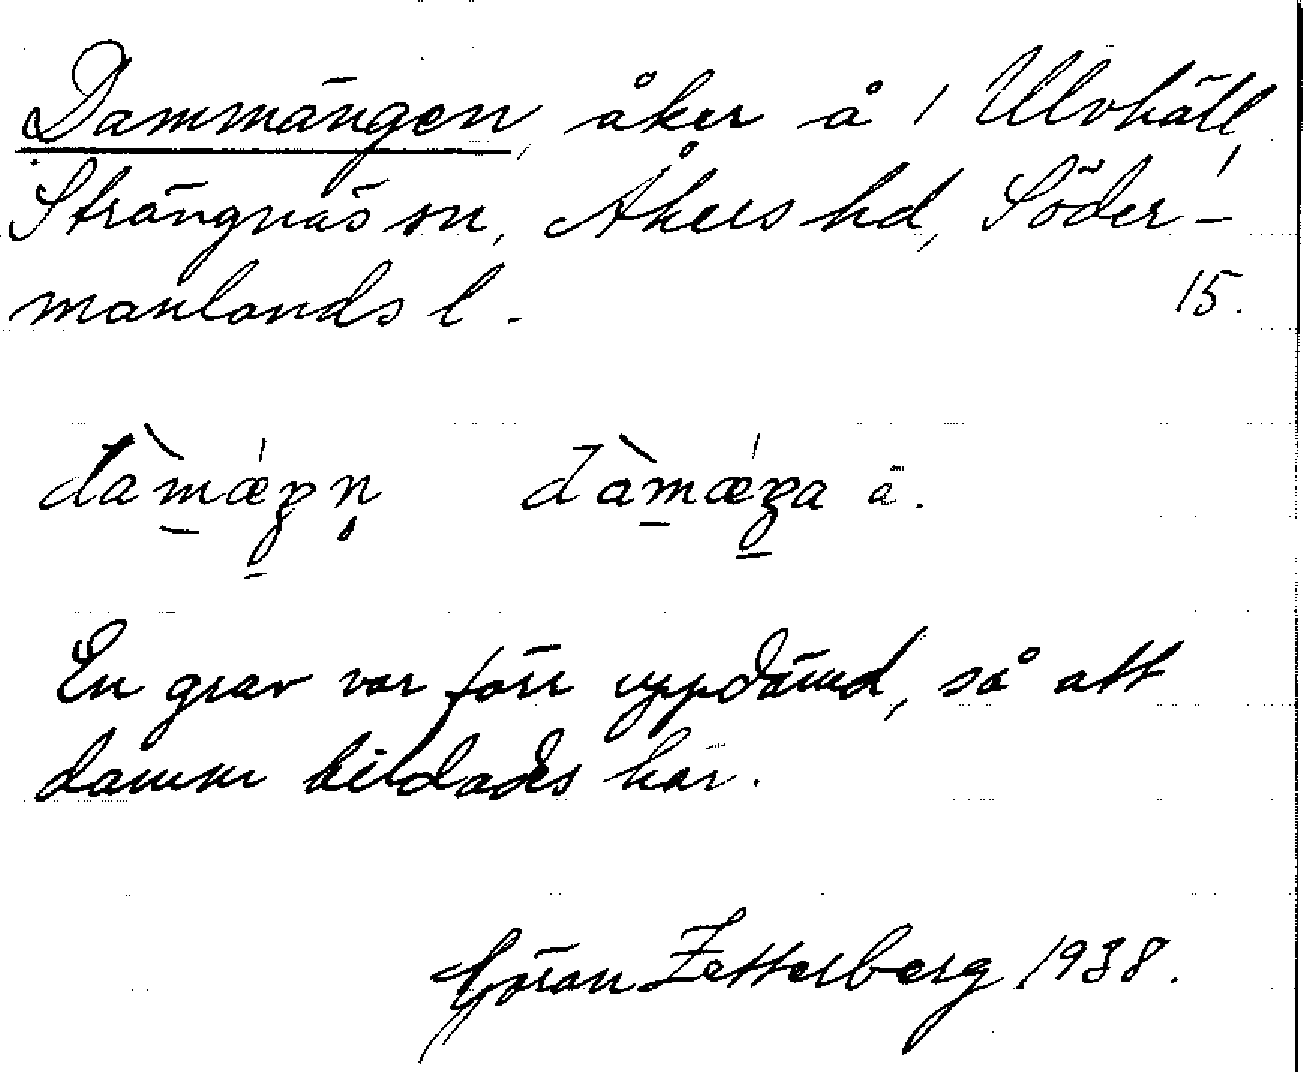 Dammängen, åker å 1 Ulvhäll,
Strängnäs sn, Åkers hd, Söder-
manlands l.
15.
dàmǽŋn̥ dàmǽŋa ä.
En grav var förr uppdämd, så att
damm bildades här.
Göran Zetterberg 1938.